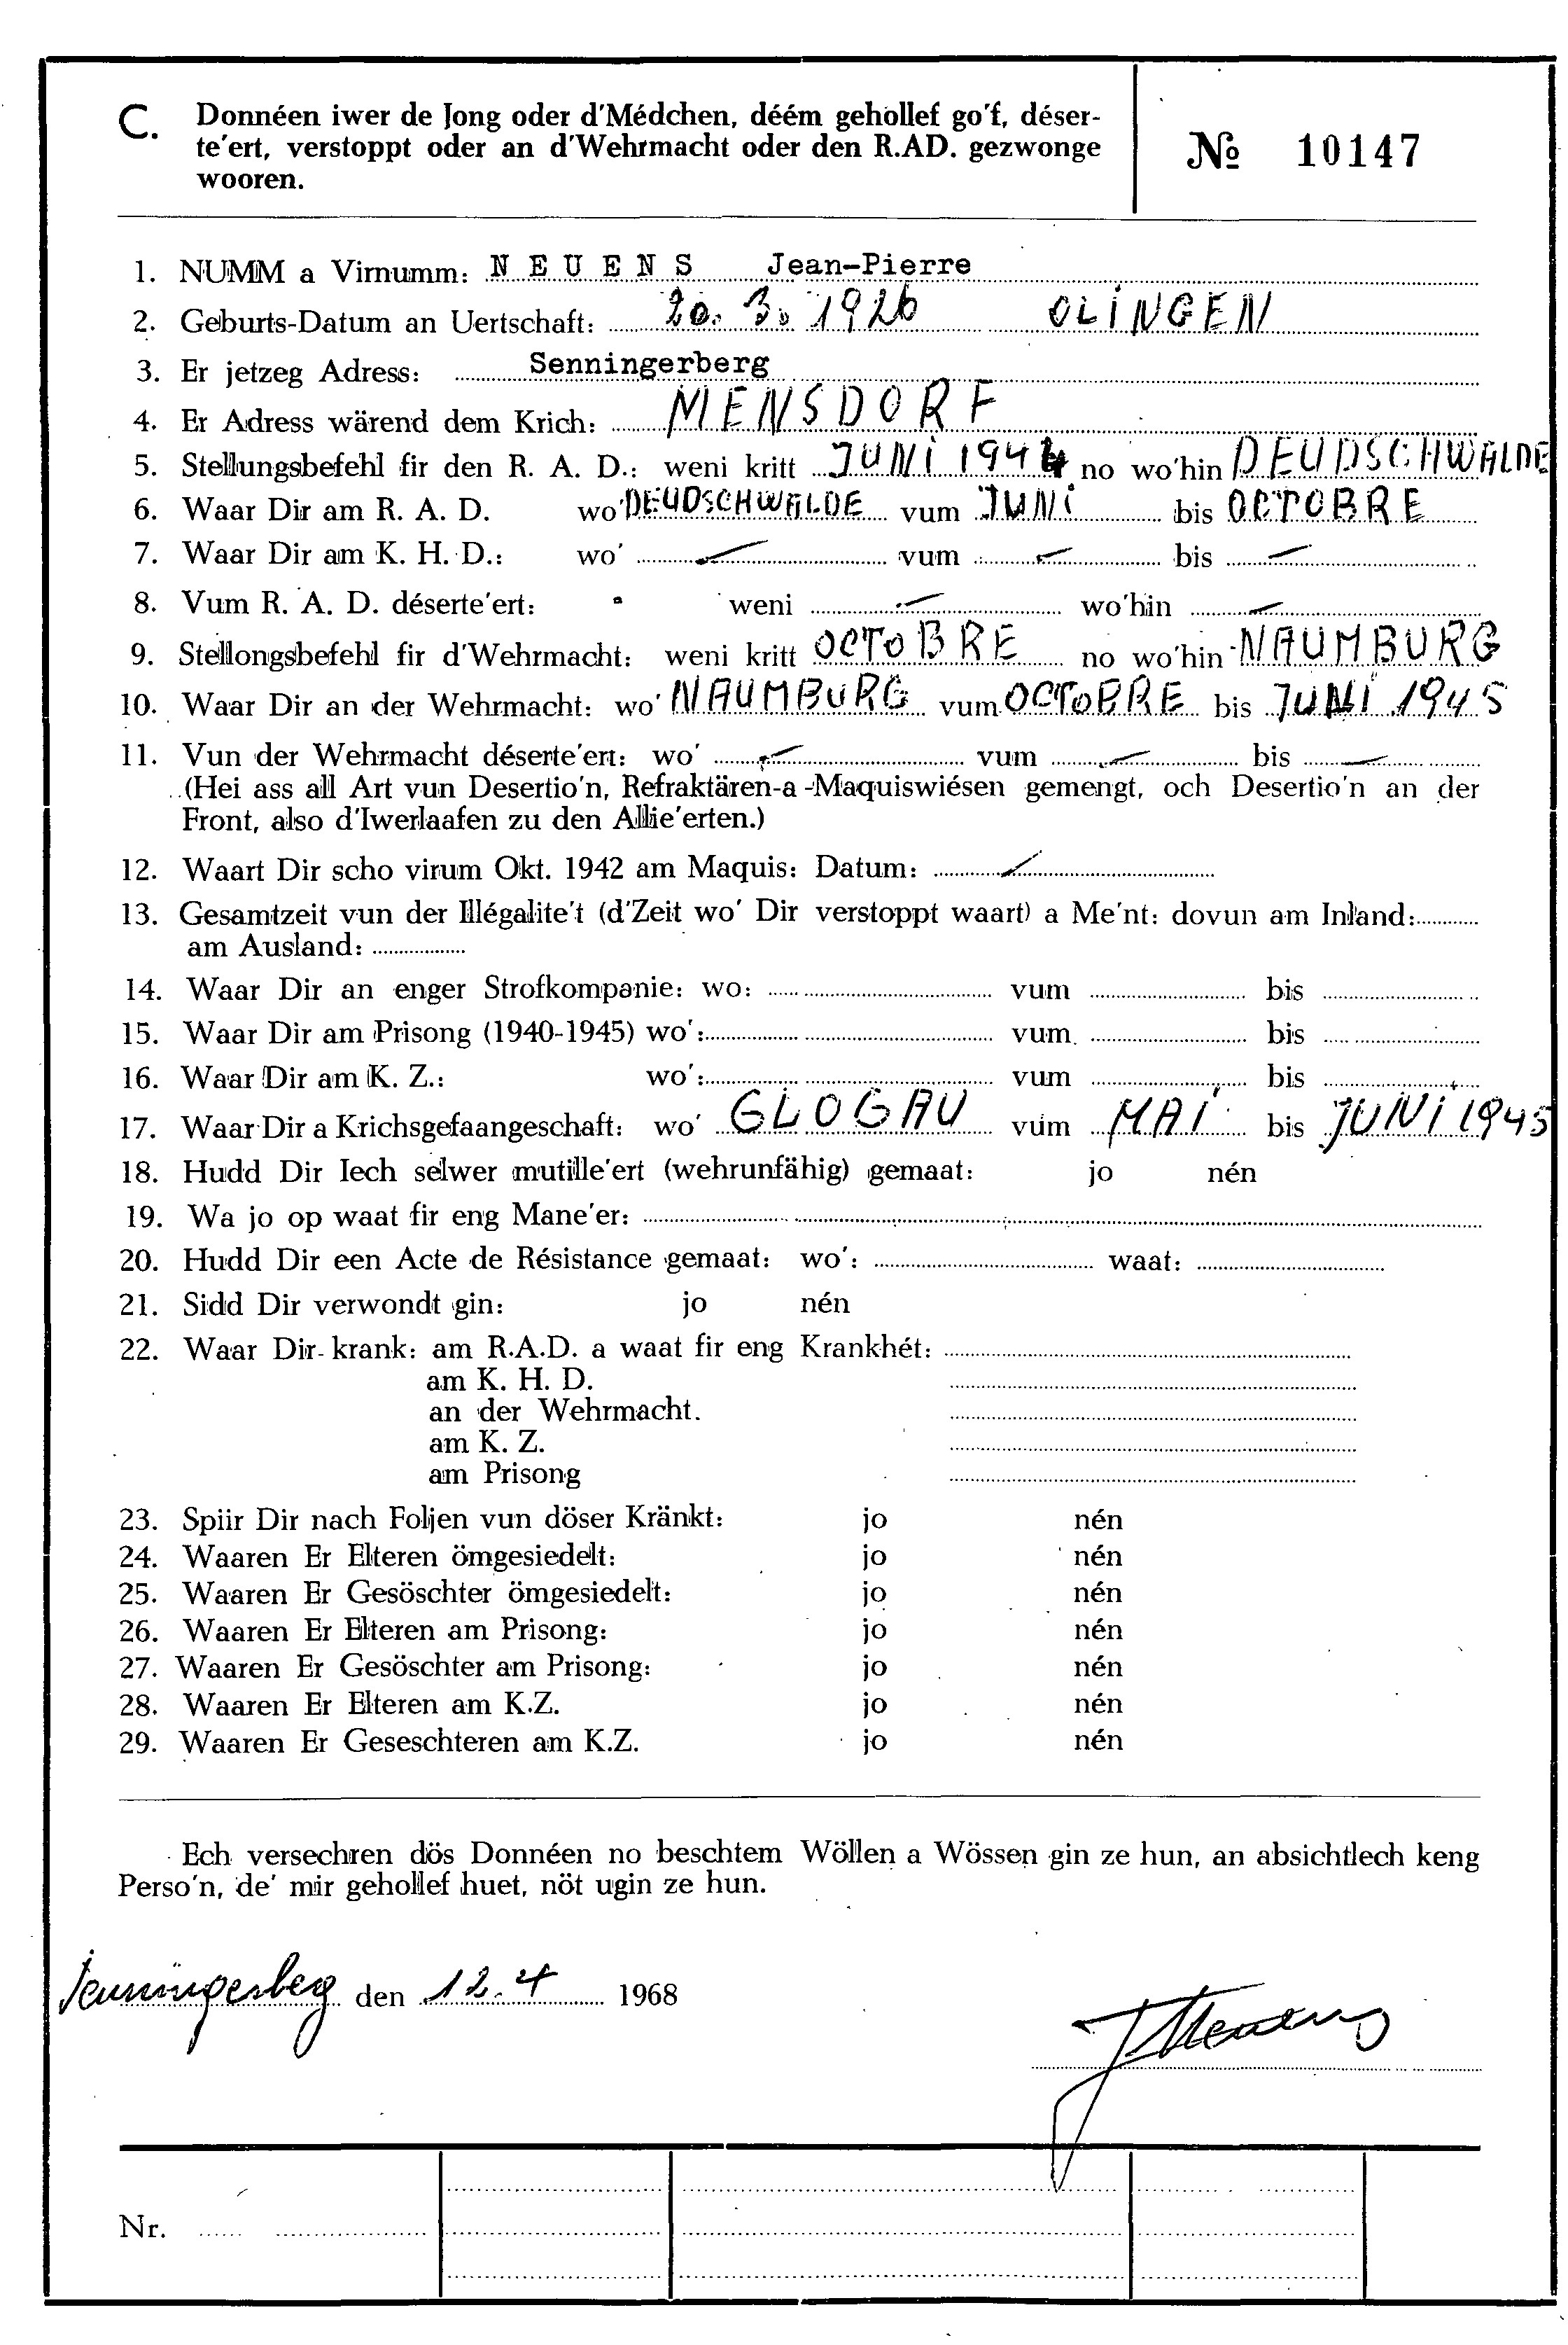 C. Donnéen iwer de Jong oder d'Médchen, déém gehollef go'f, déser-
te'ert, verstoppt oder an d'Wehrmacht oder den R.AD. gezwonge
wooren.
№ 10147
1. NUMM a Virnumm: NEUENS Jean-Pierre
2. Geburts-Datum an Uertschaft: 20. 3. 1926 OLINGEN
3. Er jetzeg Adress: Senningerberg
4. Er Adress wärend dem Krich: MENSDORF
5. Stellungsbefehl fir den R. A. D.: weni kritt JUNI 1944 no wo'hin DEUDSCHWALDE
6. Waar Dir am R. A. D. wo' DEUDSCHWALDE vum JUNI bis OCTOBRE
7. Waar Dir am K. H. D.: wo' vum bis
8. Vum R. A. D. déserte'ert: weni wo'hin
9. Stellongsbefehl fir d'Wehrmacht: weni kritt OCTOBRE no wo'hin NAUMBURG
10. Waar Dir an der Wehrmacht: wo' NAUMBURG vum OCTOBRE bis JUNI 1945
11. Vun der Wehrmacht déserte'ert: wo' vum bis
(Hei ass all Art vun Desertio'n, Refraktären-a-Maquiswiésen gemengt, och Desertio'n an der
Front, also d'Iwerlaafen zu den Allie'erten.)
12. Waart Dir scho virum Okt. 1942 am Maquis: Datum:
13. Gesamtzeit vun der Illégalite't (d'Zeit wo' Dir verstoppt waart) a Me'nt: dovun am Inland:
am Ausland:
14. Waar Dir an enger Strofkompanie: wo: vum bis
15. Waar Dir am Prisong (1940-1945) wo': vum bis
16. Waar Dir am K. Z.: wo': vum bis
17. Waar Dir a Krichsgefaangeschaft: wo' GLOGAU vum MAI bis JUNI 1945
18. Hudd Dir Iech selwer mutille'ert (wehrunfähig) gemaat: jo nén
19. Wa jo op waat fir eng Mane'er:
20. Hudd Dir een Acte de Résistance gemaat: wo': waat:
21. Sidd Dir verwondt gin: jo nén
22. Waar Dir krank: am R.A.D. a waat fir eng Krankhét:
am K. H. D.
an der Wehrmacht.
am K. Z.
am Prisong
23. Spiir Dir nach Foljen vun döser Kränkt: jo nén
24. Waaren Er Elteren ömgesiedelt: jo nén
25. Waaren Er Gesöschter ömgesiedelt: jo nén
26. Waaren Er Elteren am Prisong: jo nén
27. Waaren Er Gesöschter am Prisong: jo nén
28. Waaren Er Elteren am K.Z. jo nén
29. Waaren Er Geseschteren am K.Z. jo nén
Ech versechren dös Donnéen no beschtem Wöllen a Wössen gin ze hun, an absichtlech keng
Perso'n, de' mir gehollef huet, nöt ugin ze hun.
Senningerberg den 12. 4 1968
J Neuens
Nr.